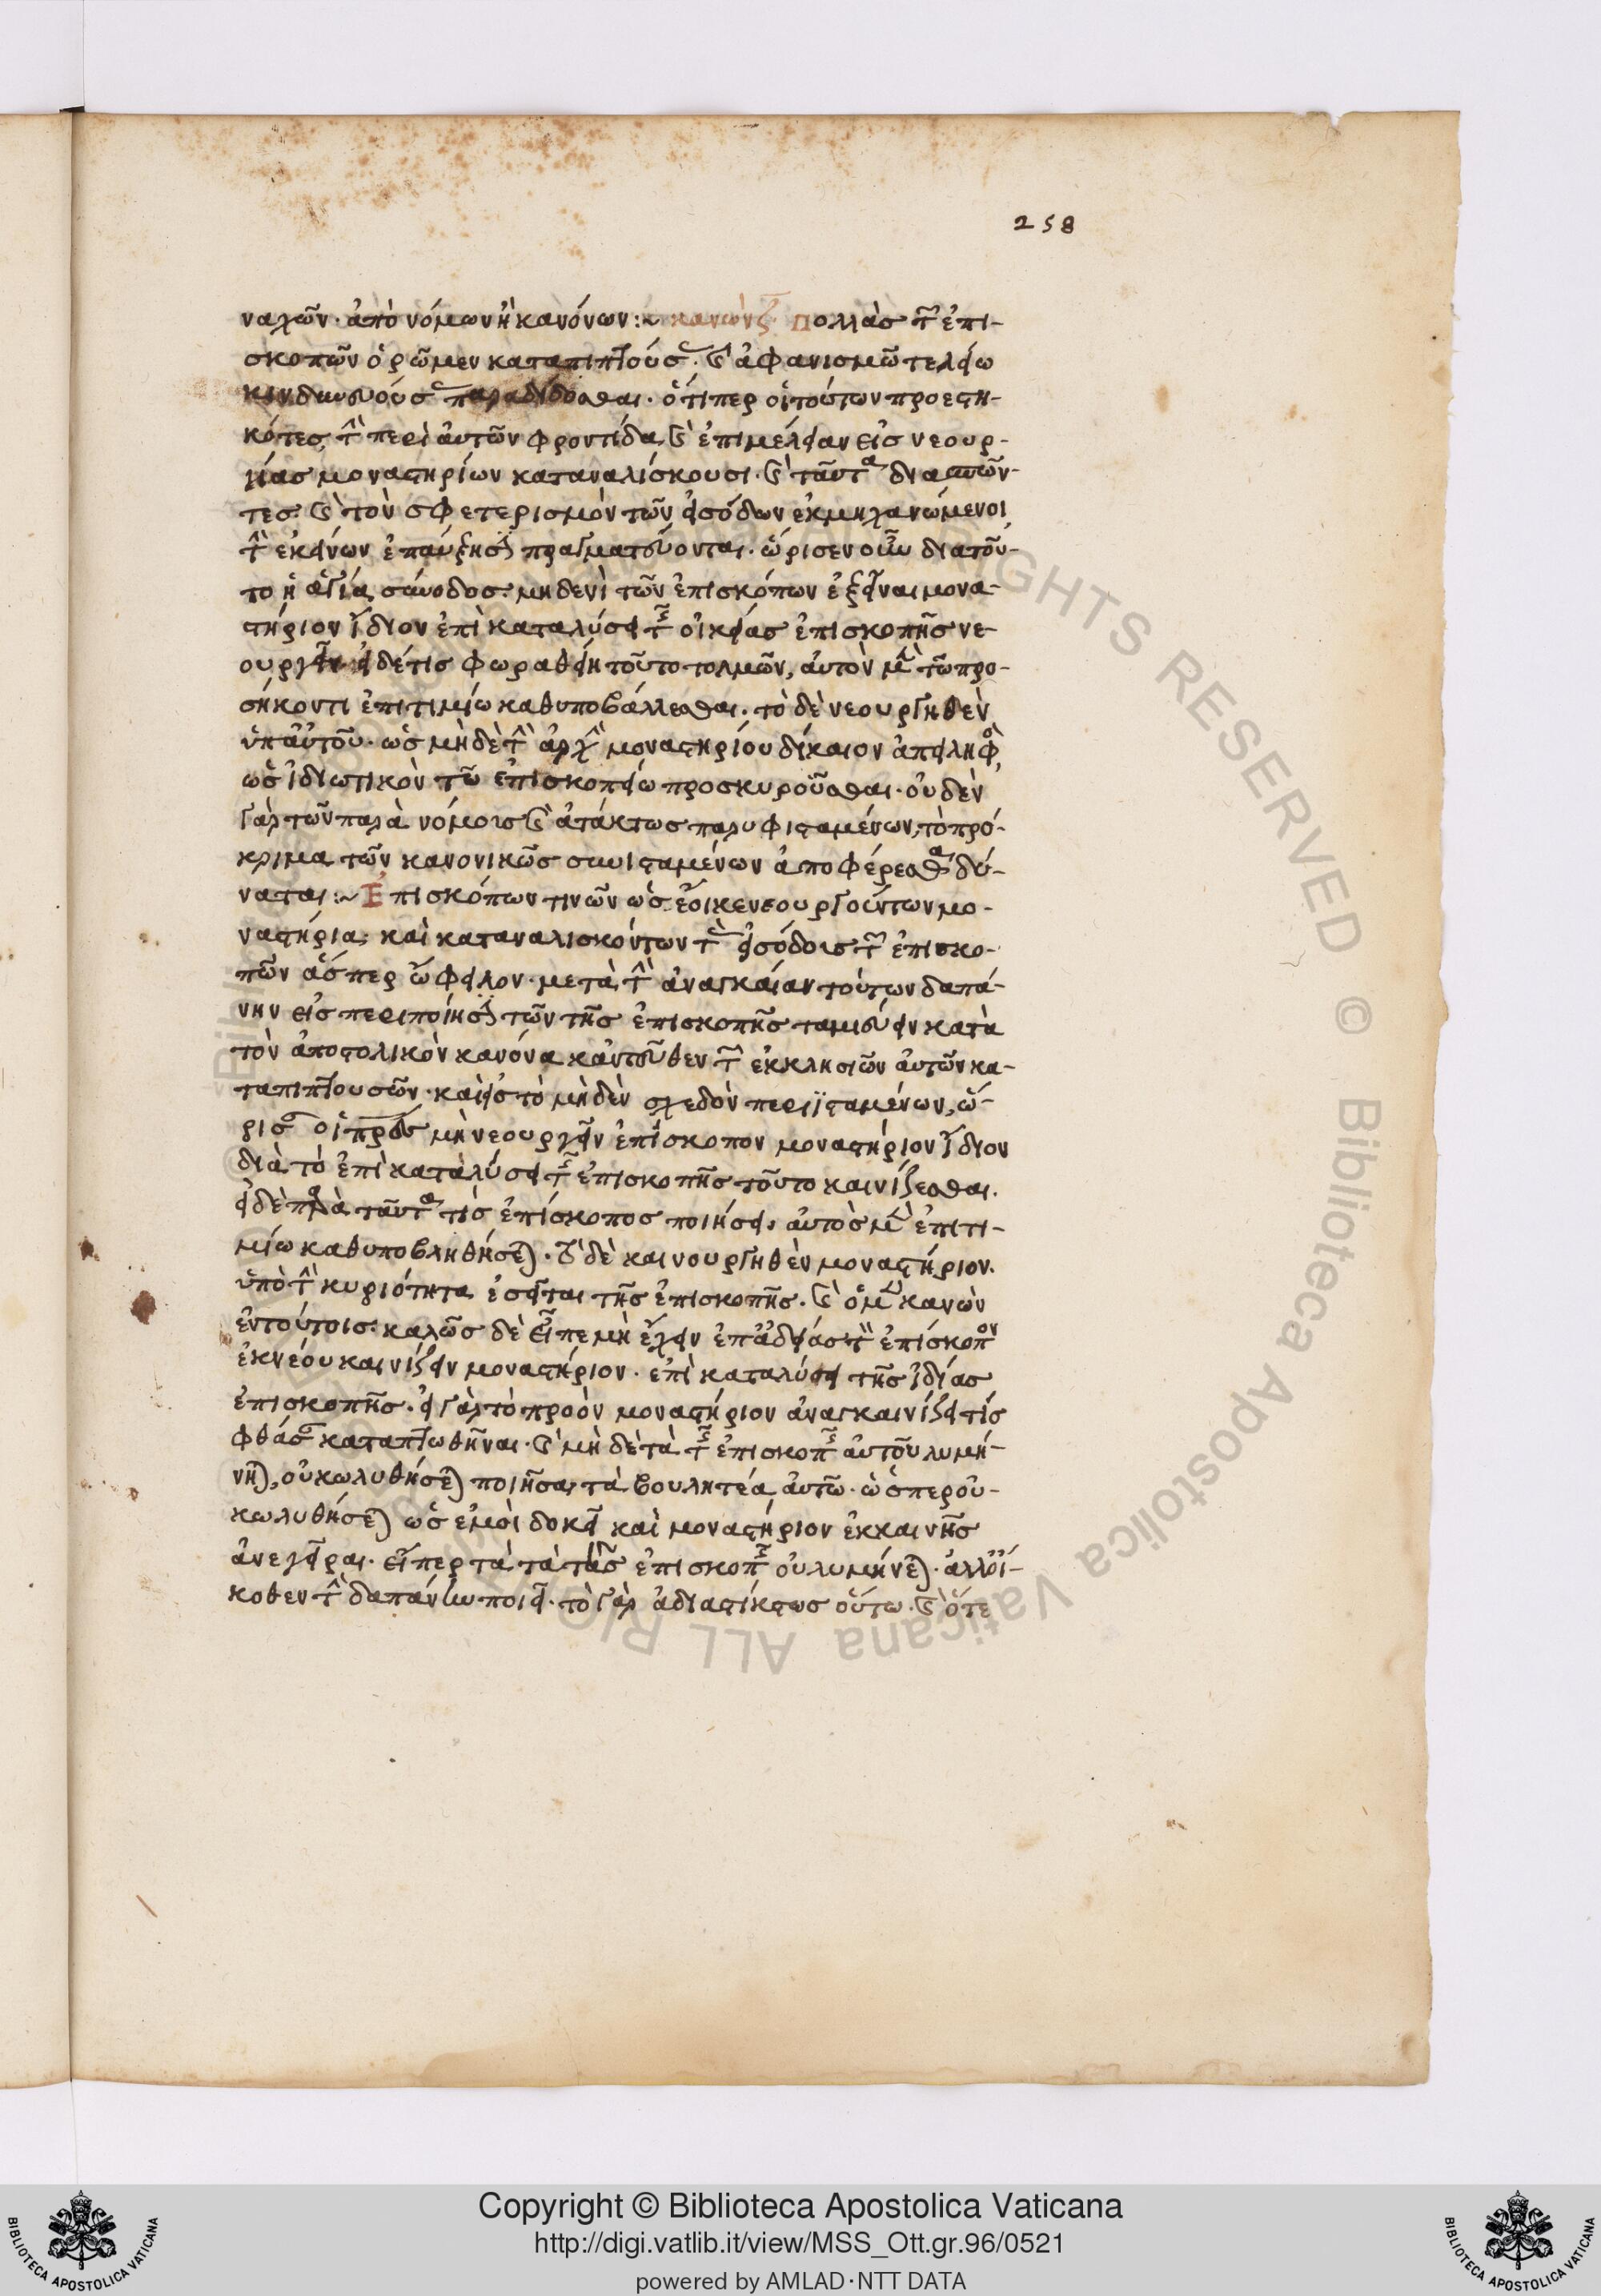 258
ναχῶν· ἀπὸ νόμων ἢ κανόνων:~ κανὼν ζ Πολλὰς τῶν ἐπι-
σκοπῶν ὁρῶμεν καταπιπτούσας· καὶ ἀφανισμῶ τελείω
κινδυνευούσας παραδίδοσθαι· ὅτιπερ οἱ τούτων προεστη-
κότες, τὴν περὶ αὐτῶν φροντίδα καὶ ἐπιμέλειαν εἰς νεουρ-
γίας μοναστηρίων καταναλίσκουσι· καὶ ταύτας
τες· καὶ τὸν σφετερισμὸν τῶν εἰσόδων ἐκμηχανώμενοι
τὴν ἐκείνων ἐπαύξησιν πραγματεύονται· ὥρισεν οὖν διατοῦ-
το ἡ ἁγία σύνοδος· μηδενὶ τῶν ἐπισκόπων ἐξεῖναι μονα-
στήριον ἴδιον ἐπὶ καταλύσει τῆς οἰκείας ἐπισκοπῆς νε-
ουργεῖν· εἰ δέ τις φωραθείη τοῦτο τολμῶν, αὐτὸν μὲν τῶ προ-
σήκοντι ἐπιτιμίω καθυποβάλλεσθαι· τὸ δὲ νεουργηθὲν
ὑπ αὐτοῦ· ὡς μὴ δὲ τὴν ἀρχὴν μοναστηρίου δίκαιον ἀπειληφὸς,
ὡς ἰδιωτικὸν τῶ ἐπισκοπείω προσκυροῦσθαι· οὐδὲν
γὰρ τῶν παρὰ νόμοις καὶ ἀτάκτως παρυφισταμένων, τὸ πρό-
κριμα τῶν κανονικῶς συνισταμένων ἀποφέρεσθαι δύ-
ναται:~ Ἐπισκόπων τινῶν ὡς ἔοικε νεουργούντων μο-
ναστήρια· καὶ καταναλισκόντων τὰς εἰσόδους τῶν ἐπισκο-
πῶν ἅσπερ ὤφειλον· μετὰ τὴν ἀναγκαίαν τούτων δαπά-
νην εἰς περιποίησιν τῶν τῆς ἐπισκοπῆς ταμιεύειν κατὰ
τὸν ἀποστολικὸν κανόνα κἀντεῦθεν τῶν ἐκκλησιῶν αὐτῶν κα-
ταπιπτουσῶν· καὶ εἰς τὸ μὴδὲν σχεδὸν περιϊσταμένων, ὥ-
ρισαν οἱ πρες μὴ νεουργεῖν ἐπίσκοπον μοναστήριον ἴδιον
διὰ τὸ ἐπὶ καταλύσει τῆς ἐπισκοπῆς τοῦτο καινίζεσθαι.
εἰ δὲ παρὰ ταῦτα τίς ἐπίσκοπος ποιήσει· αὐτὸς μὲν ἐπιτι-
μίω καθυποβληθήσεται· τὸ δὲ καινουργηθὲν μοναστήριον.
ὑπὸ τὴν κυριότητα ἐσεῖται τῆς ἐπισκοπῆς· καὶ ὁ μὲν κανὼν
ἐν τούτοις· καλῶς δὲ εἶπε μὴ ἔχειν ἐπ ἀδείας τὸν ἐπίσκοπον
ἐκ νέου καινίζειν μοναστήριον· ἐπὶ καταλύσει τῆς ἰδίας
ἐπισκοπῆς· εἰ γὰρ τὸ προὸν μοναστήριον ἀνακαινίζει τίς
φθάσαν καταπτωθῆναι· καὶ μὴ δὲ τὰ τῆς ἐπισκοπῆς αὐτοῦ λυμή-
νηται, οὐ κωλυθήσεται ποιῆσαι τὰ βουλητέα αὐτῶ· ὥσπερ οὐ-
κωλυθήσεται ὡς ἐμοὶ δοκεῖ καὶ μοναστήριον ἐκ καινῆς
ἀνεγεῖραι· εἴπερ τὰ τῆς ἐπισκοπῆς οὐ λυμήνεται· ἀλλ οἴ-
κοθεν τὴν δαπάνην ποιεῖ· τὸ γὰρ ἀδιαστίκτως οὕτω· καὶ ὅτε
Copyright © Biblioteca Apostolica Vaticana
http://digi.vatlib.it/view/MSS_Ott.gr.96/0521
powered by AMLAD·NTT DATA
BIBLIOTECA APOSTOLICA VATICANA
BIBLIOTECA APOSTOLICA VATICANA